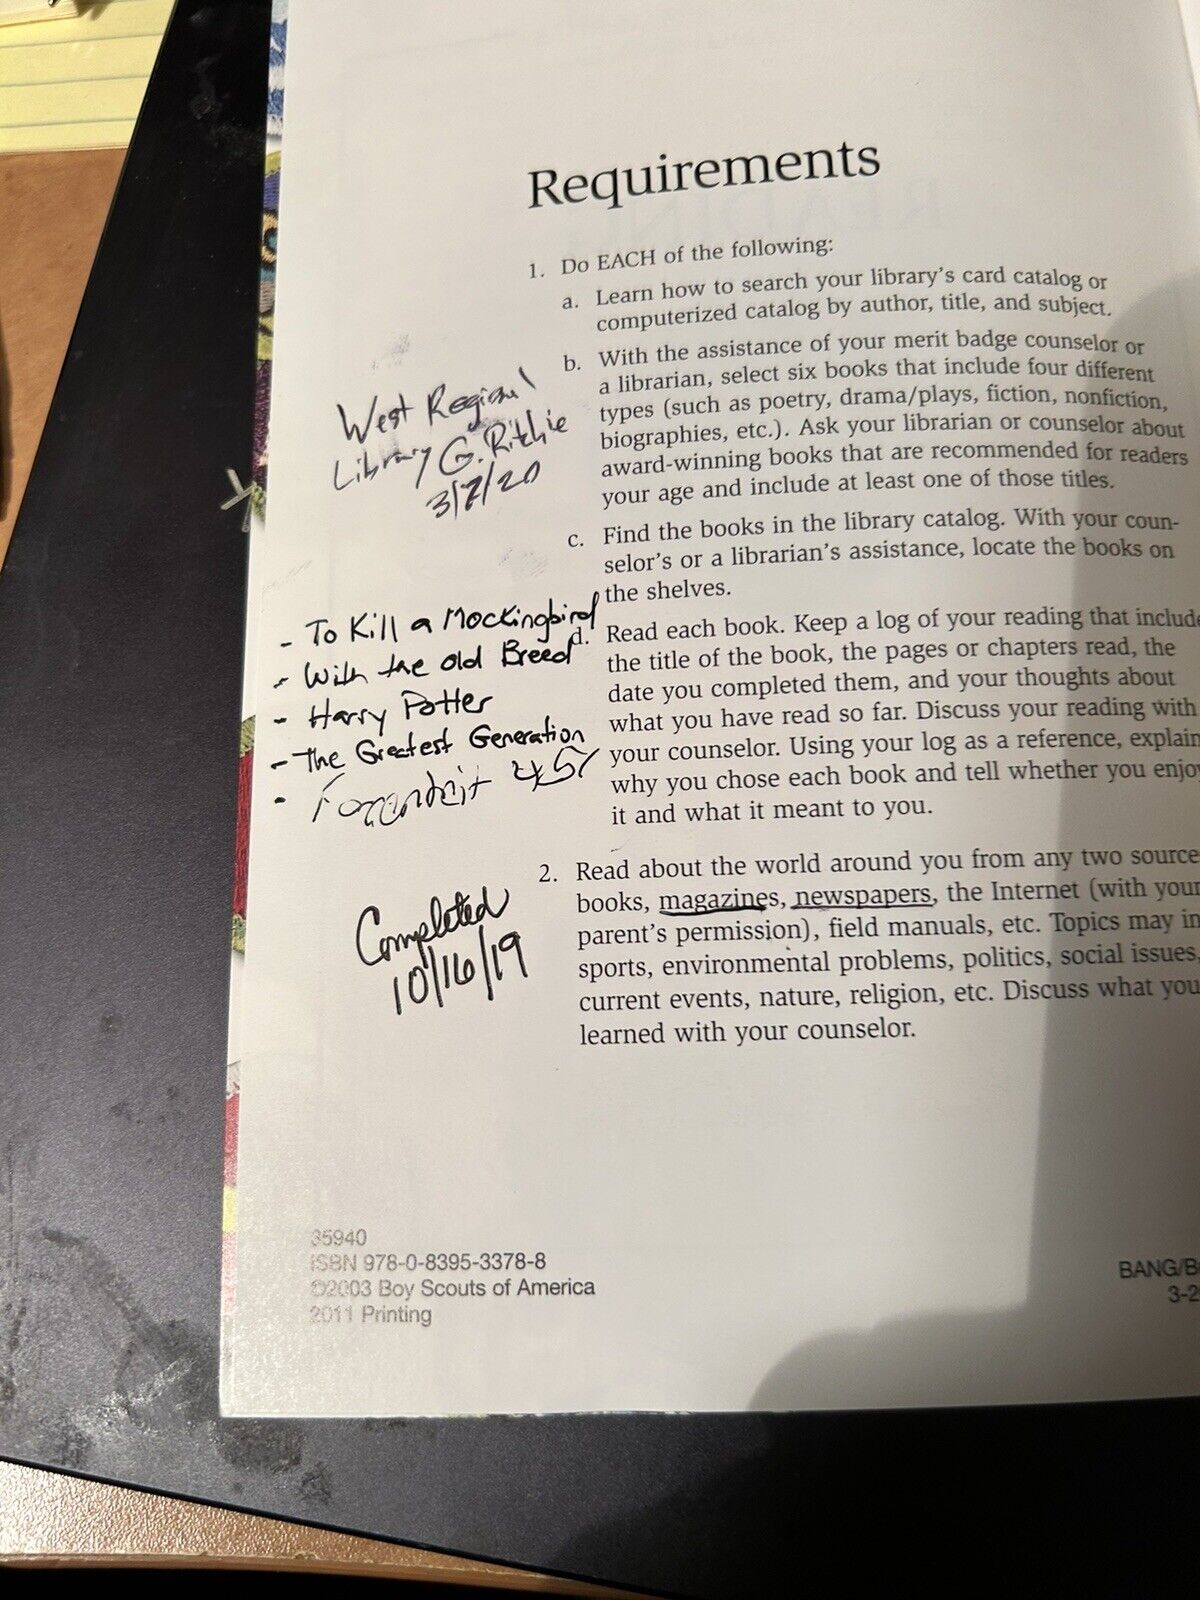 Requirements
1. Do EACH of the following:
a. Learn how to search your library's card catalog or
computerized catalog by author, title, and subject.
b. With the assistance of your merit badge counselor or
a librarian, select six books that include four different
types (such as poetry, drama/plays, fiction, nonfiction,
biographies, etc.). Ask your librarian or counselor about
award-winning books that are recommended for readers
your age and include at least one of those titles.
West Regional
Library G. Ritchie
3/7/20
c. Find the books in the library catalog. With your coun-
selor's or a librarian's assistance, locate the books on
the shelves.
d. Read each book. Keep a log of your reading that include
the title of the book, the pages or chapters read, the
date you completed them, and your thoughts about
what you have read so far. Discuss your reading with
your counselor. Using your log as a reference, explain
why you chose each book and tell whether you enjoy
it and what it meant to you.
- To Kill a Mockingbird
- With the old Breed
- Harry Potter
- The Greatest Generation
-
2. Read about the world around you from any two source
books, magazines, newspapers, the Internet (with your
parent's permission), field manuals, etc. Topics may in
sports, environmental problems, politics, social issues,
current events, nature, religion, etc. Discuss what you
learned with your counselor.
Completed
10/16/19
35940
ISBN 978-0-8395-3378-8
©2003 Boy Scouts of America
2011 Printing
BANG/B
3-2